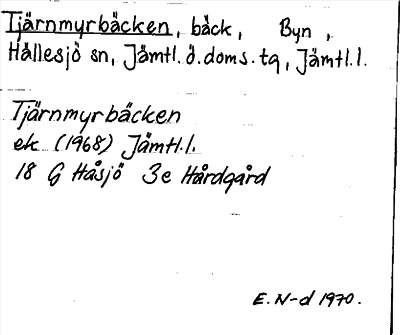 Tjärnmyrbäcken, bäck, Byn,
Hällesjö sn, Jämtl.ö.doms.tg, Jämtl.l.
Tjärnmyrbäcken
ek (1968) Jämtl.l.
18 G Håsjö 3e Hårdgård
E. N-d 1970.